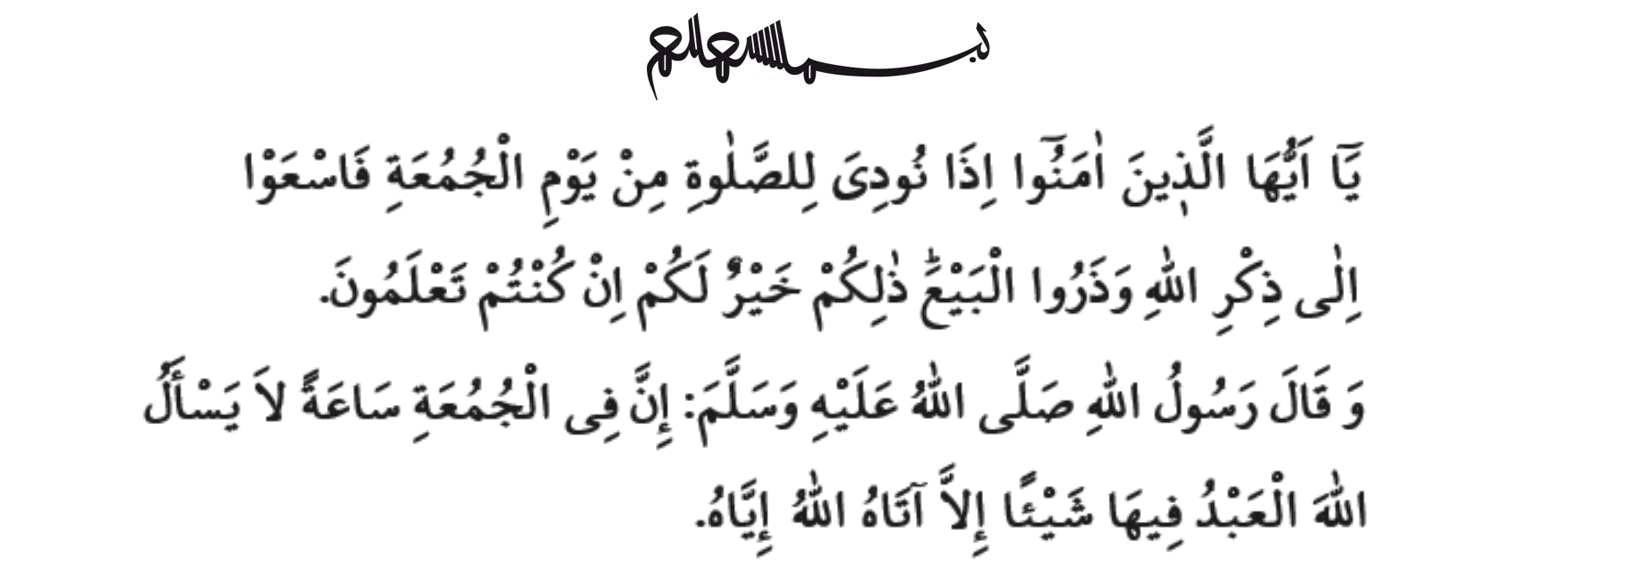 بسم الله الرحمن الرحيم
يَٓا اَيُّهَا الَّذ۪ينَ اٰمَنُٓوا اِذَا نُودِىَ لِلصَّلٰوةِ مِنْ يَوْمِ الْجُمُعَةِ فَاسْعَوْا
اِلٰى ذِكْرِ اللّٰهِ وَذَرُوا الْبَيْعَۜ ذٰلِكُمْ خَيْرٌ لَكُمْ اِنْ كُنْتُمْ تَعْلَمُونَ.
وَ قَالَ رَسُولُ اللّٰهِ صَلَّى اللّٰهُ عَلَيْهِ وَسَلَّمَ: إِنَّ فِى الْجُمُعَةِ سَاعَةً لاَ يَسْأَلُ
اللّٰهَ الْعَبْدُ فِيهَا شَيْئًا إِلاَّ آتَاهُ اللّٰهُ إِيَّاهُ.